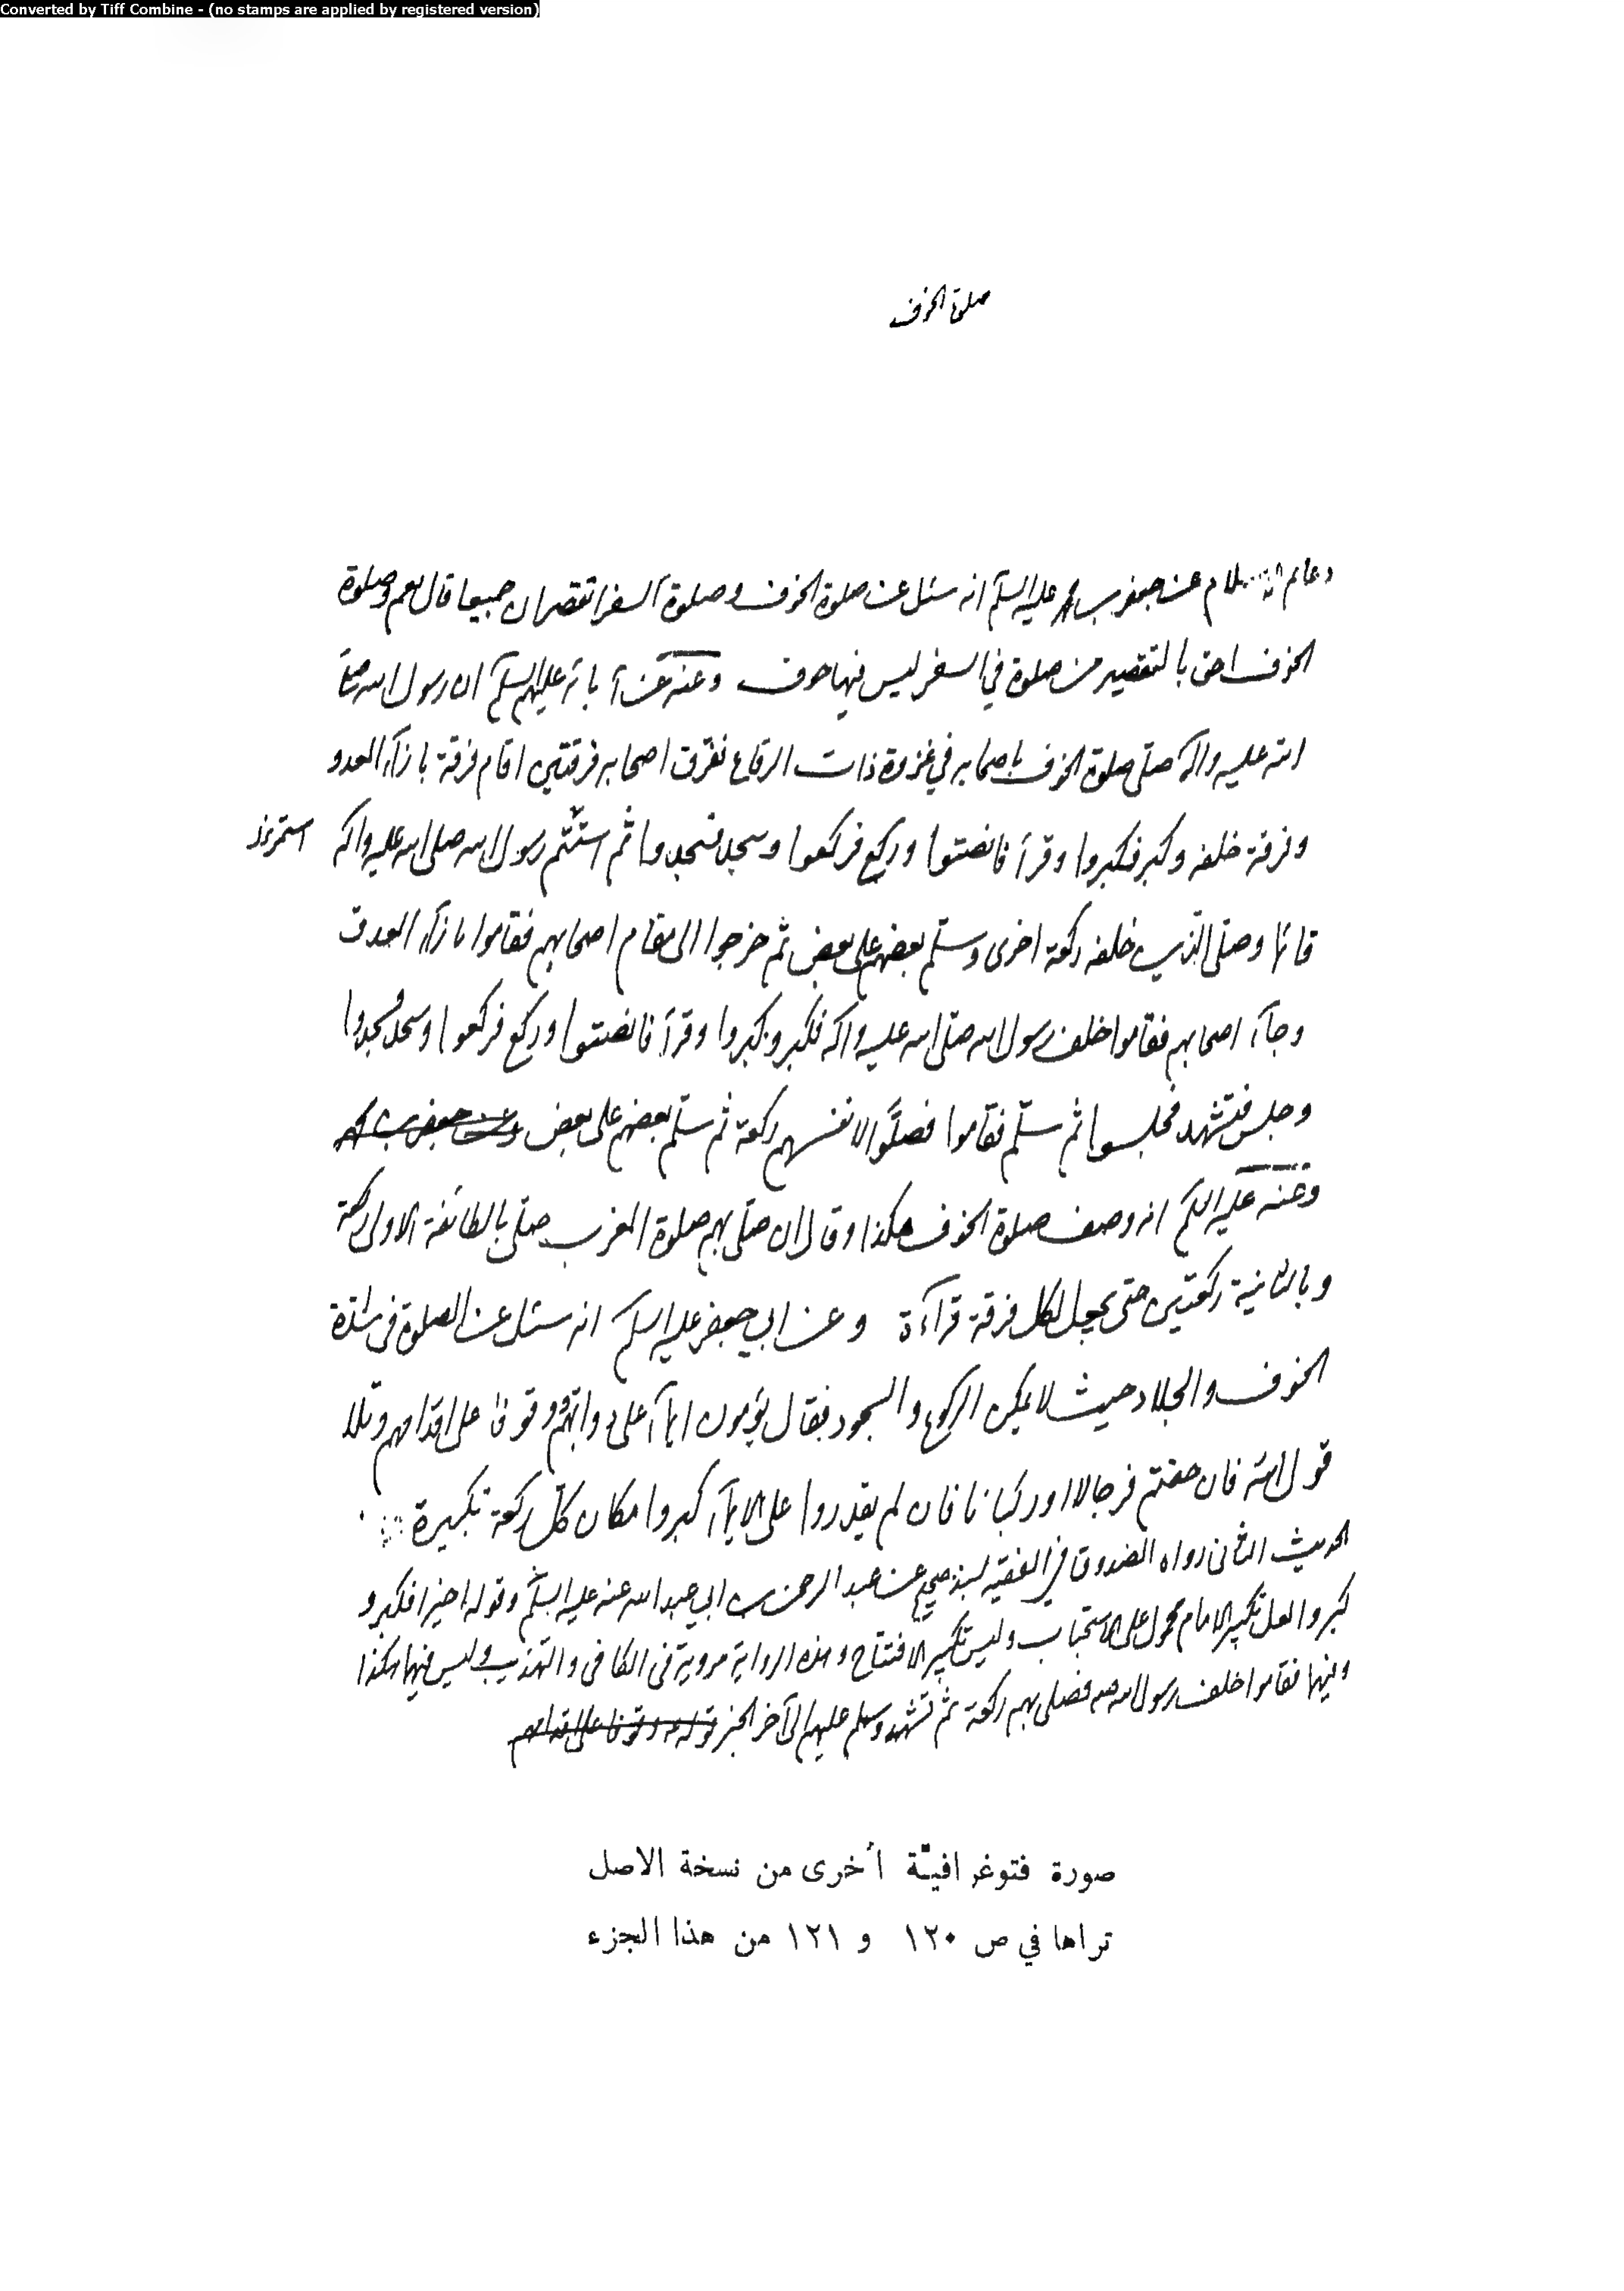 Converted by Tiff Combine - (no stamps are applied by registered version)
صلوة الخوف
دعائم الاسلام عن جعفر بن محمد عليه السلم انه سئل عن صلوة الخوف وصلوة السفر اتقصران جميعا قال نعم وصلوة
الخوف احق بالتقصير من صلوة في السفر ليس فيها خوف وعنه عن آبائه عليهم السلم ان رسول الله صلى
الله عليه واله صلى صلوة الخوف باصحابه في غزوة ذات الرقاع ففرق اصحابه فرقتين اقام فرقة بازآء العدو
وفرقة خلفه وكبر فكبروا وقرأ فانصتوا وركع فركعوا وسجد فسجدوا ثم استتم رسول الله صلى الله عليه واله
استمر خ‍ل
قائما وصلى الذين خلفه ركعة اخرى وسلم بعضهم على بعض ثم خرجوا الى مقام اصحابهم فقاموا بازآء العدو
وجآء اصحابهم فقاموا خلف رسول الله صلى الله عليه واله فكبر وكبروا وقرأ فانصتوا وركع فركعوا وسجد فسجدوا
وجلس فتشهد فجلسوا ثم سلم فقاموا فصلوا لانفسهم ركعة ثم سلم بعضهم على بعض وعن جعفر بن محمد
وعنه عليه السلم انه وصف صلوة الخوف هكذا وقال ان صلى بهم صلوة المغرب صلى بالطائفة الاولى ركعة
وبالثانية ركعتين حتى يجعل لكل فرقة قرآءة وعن ابي جعفر عليه السلم انه سئل عن الصلوة في شدة
الخوف والجلاد حيث لا يمكن الركوع والسجود فقال يؤمون ايمآء على دوابهم ووقوفا على اقدامهم وتلا
قول الله فان خفتم فرجالا او ركبانا فان لم يقدروا على الايمآء كبروا مكان كل ركعة تكبيرة
الحديث الثاني رواه الصدوق في الفقيه بسند صحيح عن عبد الرحمن بن ابي عبد الله عنه عليه السلم وقوله اخيرا فكبر و
كبروا لعل تكبير الامام محمول على الاستحباب وليس تكبير الافتتاح وهذه الرواية مروية في الكافي والتهذيب وليس فيهما هكذا
وفيهما فقاموا خلف رسول الله ص فصلى بهم ركعة ثم تشهد وسلم عليهم الى آخر الخبر قوله ع ووقوفا على اقدامهم
صورة فتوغرافيّة أخرى من نسخة الاصل
تراها في ص ١٢٠ و ١٢١ من هذا الجزء